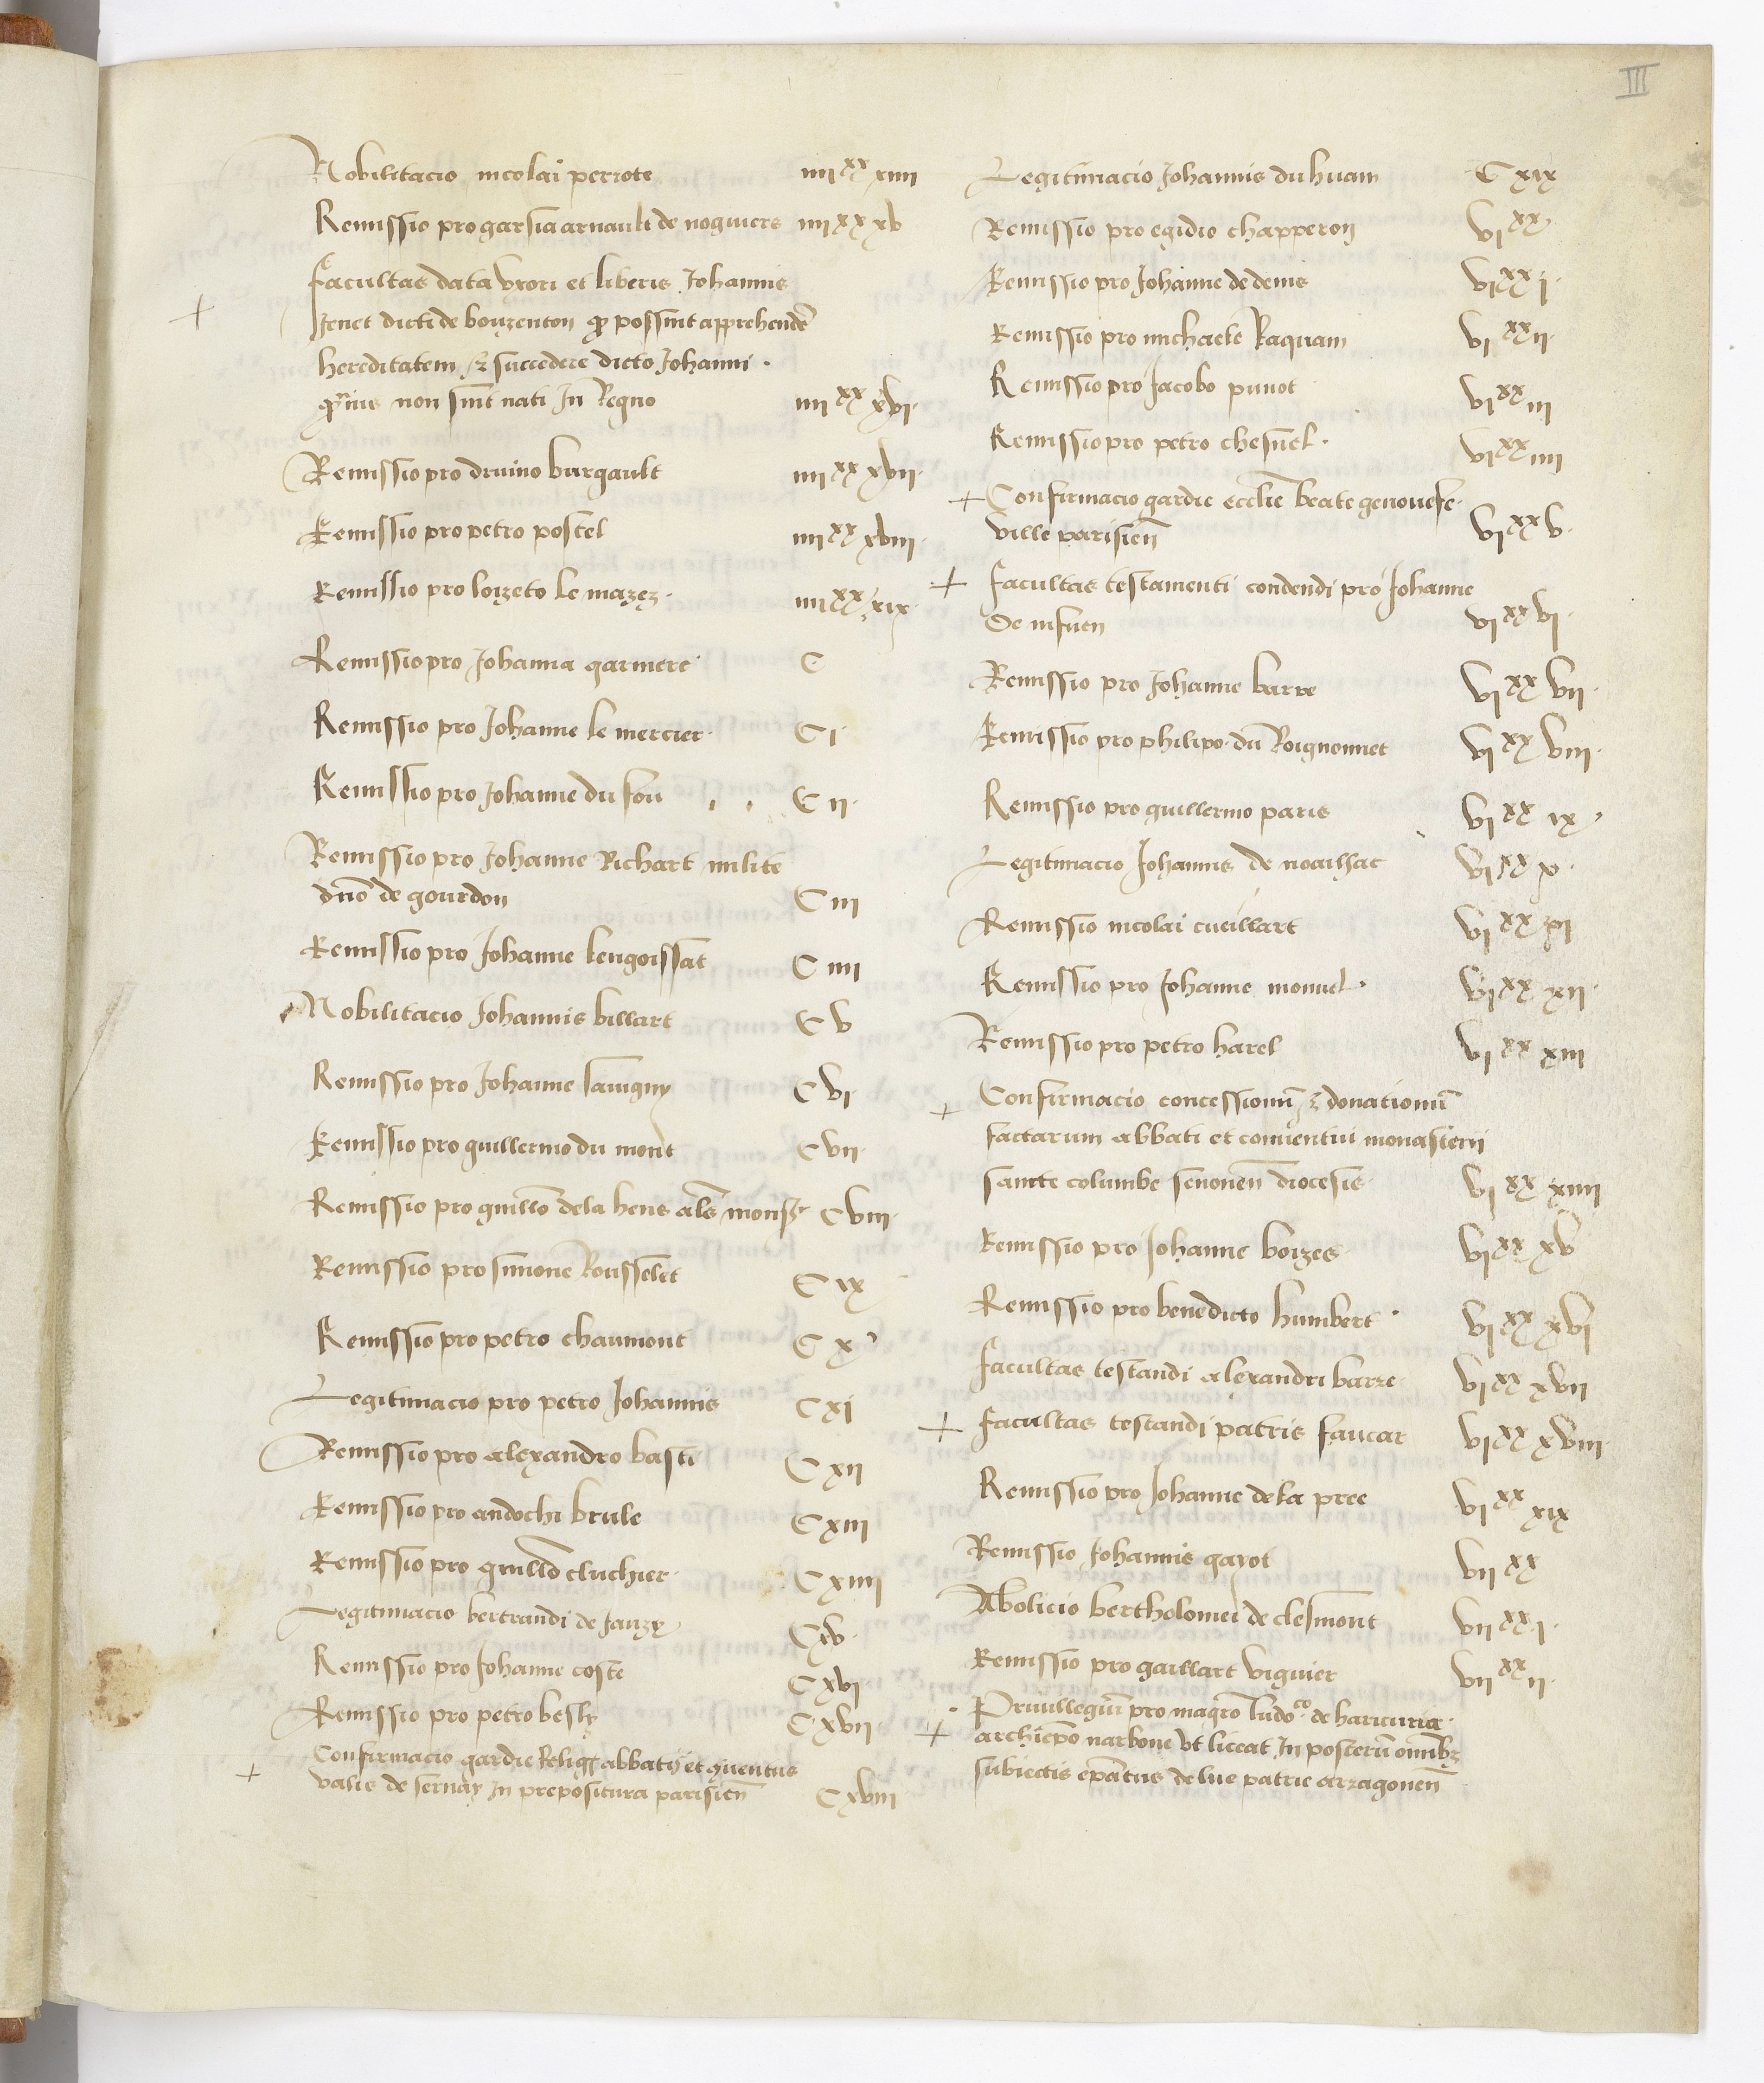 III
Nobilitacio nicolai perrote iiii xx xiiii
Remissio pro garsia arnauli de noguiers iiii xx xv
Facultas data uxori et liberis Johannis
Jenet dicti de bouzenton qͥ possint apprehendere
hereditatem & succedere dicto Johanni .
qͣmuis non sint nati In Regno iiii xx xvi .
Remissio pro druino burgault iiii xx xvii .
Remissio pro petro postel iiii xx xviii .
Remissio pro loizeto le mazez . iiii xx xix .
Remissio pro Johanna garniere C
Remissio pro Johanne le mercier . C i .
Remissio pro Johanne du fou . . C ii .
Remissio pro Johanne Richart milite
dño de gourdon C iii
Remissio pro Johanne lengoissat C iiii
Nobilitacio Johannis billart C v
Remissio pro Johanne sauigny C vi .
Remissio pro guillermo du mont C vii .
Remissio pro guillõ de la heus als C viii .
Remissio pro simone Rousselet C ix
Remissio pro petro chaumont C x
Legitimacio pro petro Johannis C xi
Remissio pro alexandro basti C xii
Remissio pro andochi brule C xiii
Remissio pro guillõ cluchier . C xiiii
Legitimacio bertrandi de Jauzy C xv .
Remissio pro Johanne coste C xvi
Remissio pro petro besly C xvii .
Confirmacio gardie Religs abbatis et quentus
valis de sernay In prepositura parisien C xviii
Legitimacio Johannis du huam C xix
Remissio pro egidio chapperon vi xx
Remissio pro Johanne de denis vi xx i .
Remissio pro michaele kaquam vi xx ii .
Remissio pro Jacobo punot vi xx iii
Remissio pro petro chesnel . vi xx iiii
Confirmacio gardie ecclie beate genouefe .
ville parisien vi xx v .
Facultas testamenti condendi pro Johanne
De vi xx vi .
Remissio pro Johanne barre vi xx vii .
Remissio pro philipo . du Roignonnet vi xx viii .
Remissio pro guillermo paris vi xx ix
Legitimacio Johannis de noaillac vi xx x .
Remissio nicolai cueillart vi xx xi
Remissio pro Johanne monnel . vi xx xii .
Remissio pro petro harel vi xx xiii
Confirmacio concessionũ & donationũ
factarum abbati et conuentui monasterii
sancte columbe senonen diocesis . vi xx xiiii
Remissio pro Johanne boizes vi xx xv
Remissio pro benedicto humbert . vi xx xvi
Facultas testandi alexandri barre vi xx xvii
Facultas testandi patris faucar vi xx xviii .
Remissio pro Johanne de la pree vi xx xix
Remissio Johannis gayot vii xx
Abolicio bertholomei de clesmont vii xx i .
Remissio pro gaillart viguier vii xx ii .
. Priuilegiũ pro magrõ ludoco . de haricuria .
archiepõ narbone vt liceat In posterũ omibz
subiectis epãtus de lue patrie arragonen